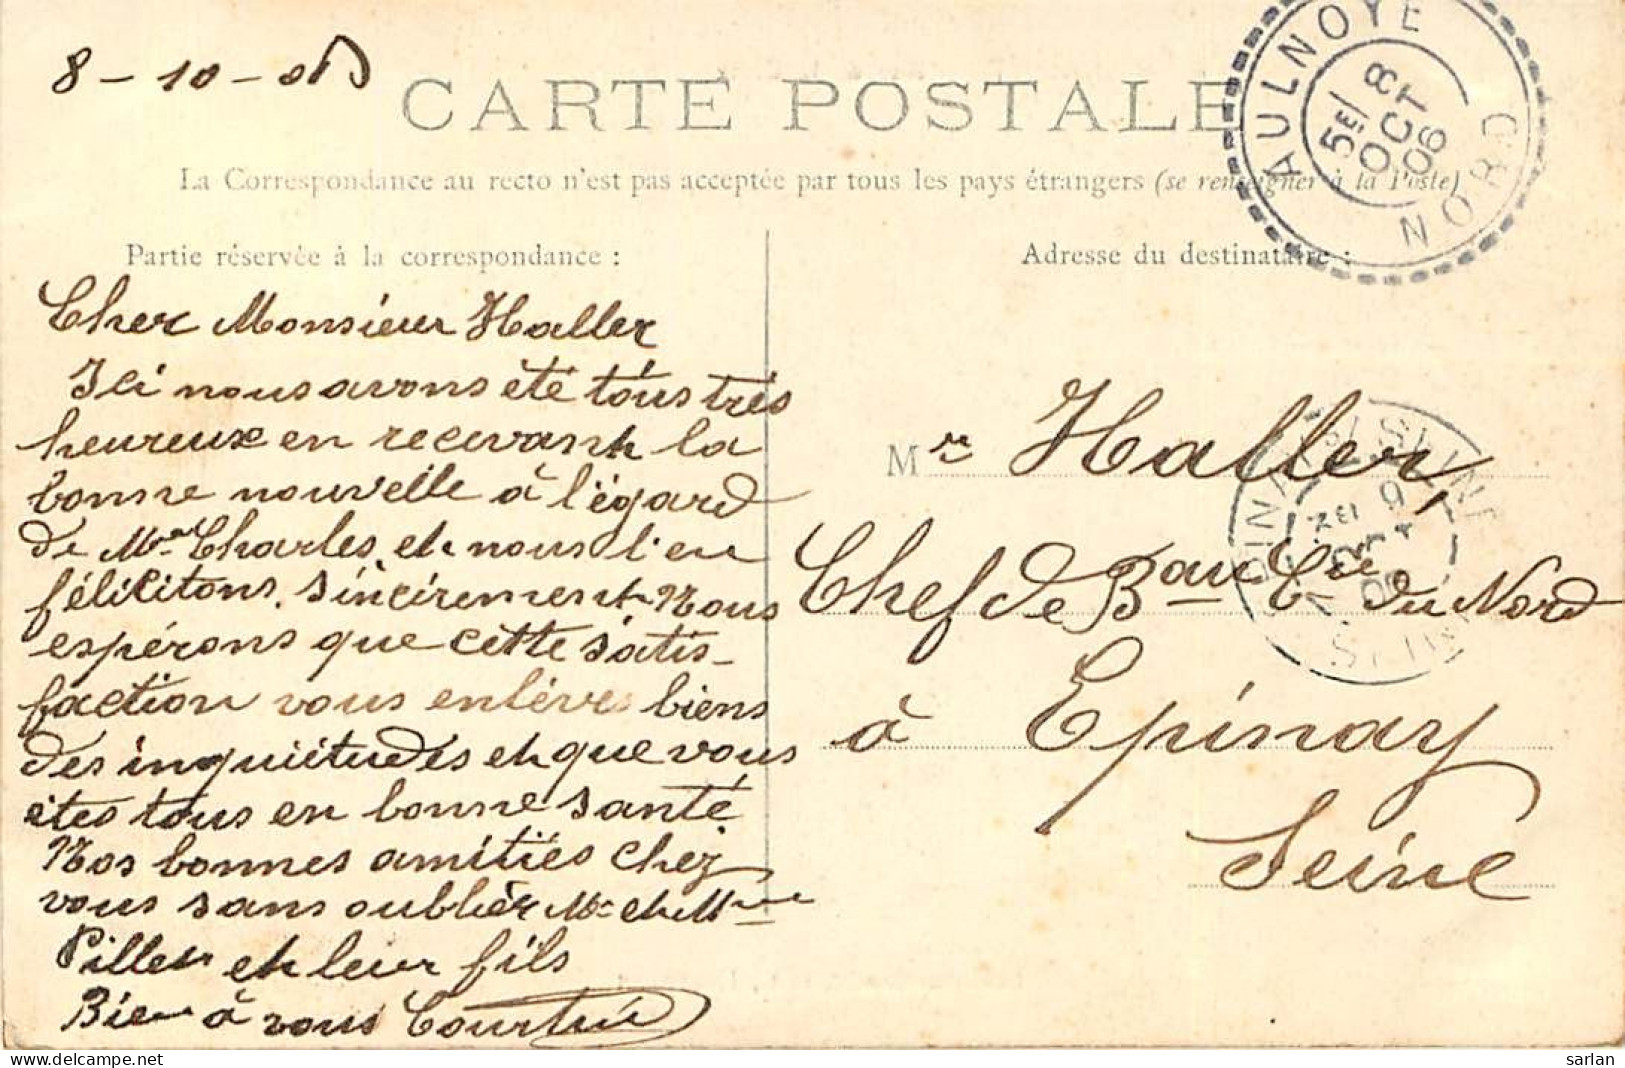 8 - 10 - 06
CARTE POSTALE
La Correspondance au recto n'est pas acceptée par tous les pays étrangers (se renseigner à la Poste)
AULNOYE
5E/
8
OCT
06
NORD
Partie réservée à la correspondance :
Adresse du destinataire :
Cher Monsieur Haller
Ici nous avons été tous très
heureux en recevant la
bonne nouvelle à l'égard
de Mme Charles et nous l'en
félicitons sincirement Nous
espérons que cette satis-
faction vous enlèvre biens
des inquiétudes et que vous
êtes tous en bonne santé
Nos bonnes amitiés chez
vous sans oublier Mr et Mme
et leur fils
Bien à vous
Mr Haller,
Chef de Bau Cie du Nord
à Epinay
Seine
sarlan